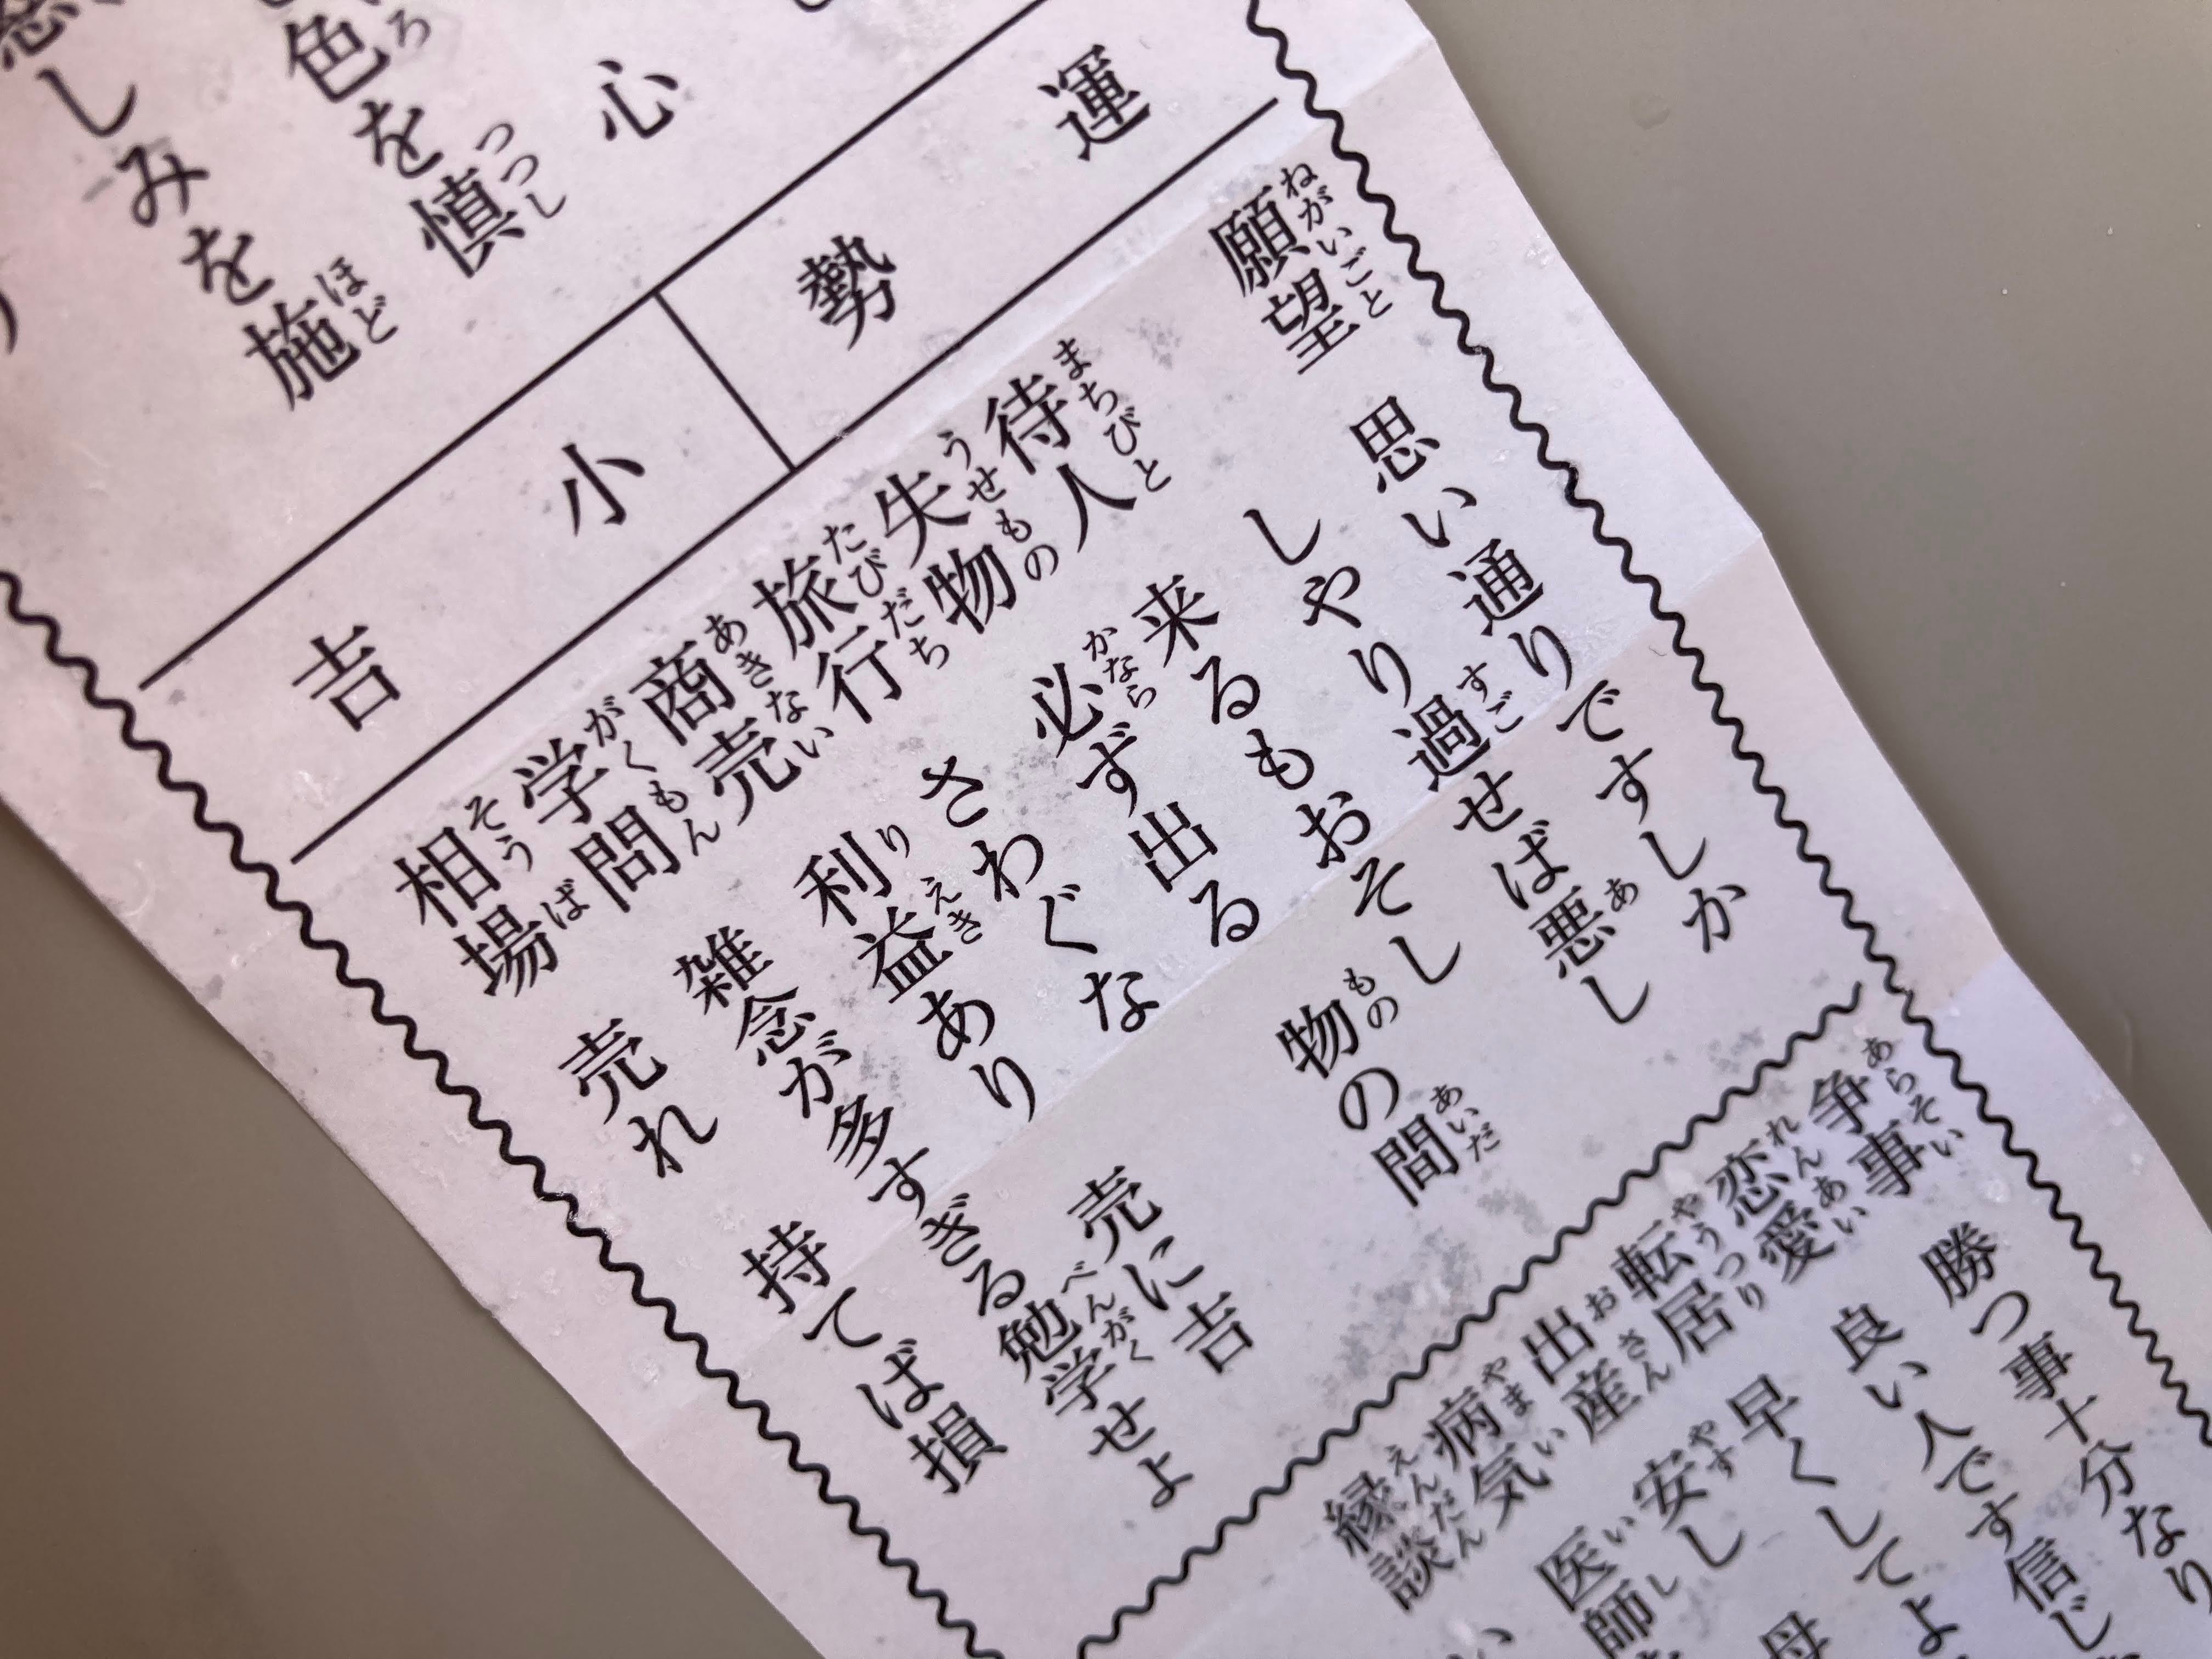 心
色を慎
しみを施
運勢
小吉
願望 思い通りですしか
しやり過せば悪し
待人 来るもおそし
失物 必ず出る 物の間
旅行 さわぐな
商売 利益あり 売に吉
学問 雑念が多すぎる勉学せよ
相場 売れ 持てば損
争事 勝つ事十分なり
恋愛 良い人です信じ
転居 早くしてよ
出産 安し 母
病気 医師
縁談